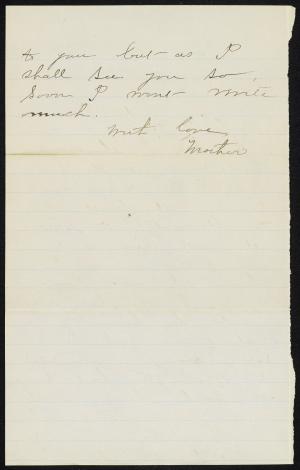 to you but as I
shall see you so,
Soon I wont write
much.
With love,
Mother